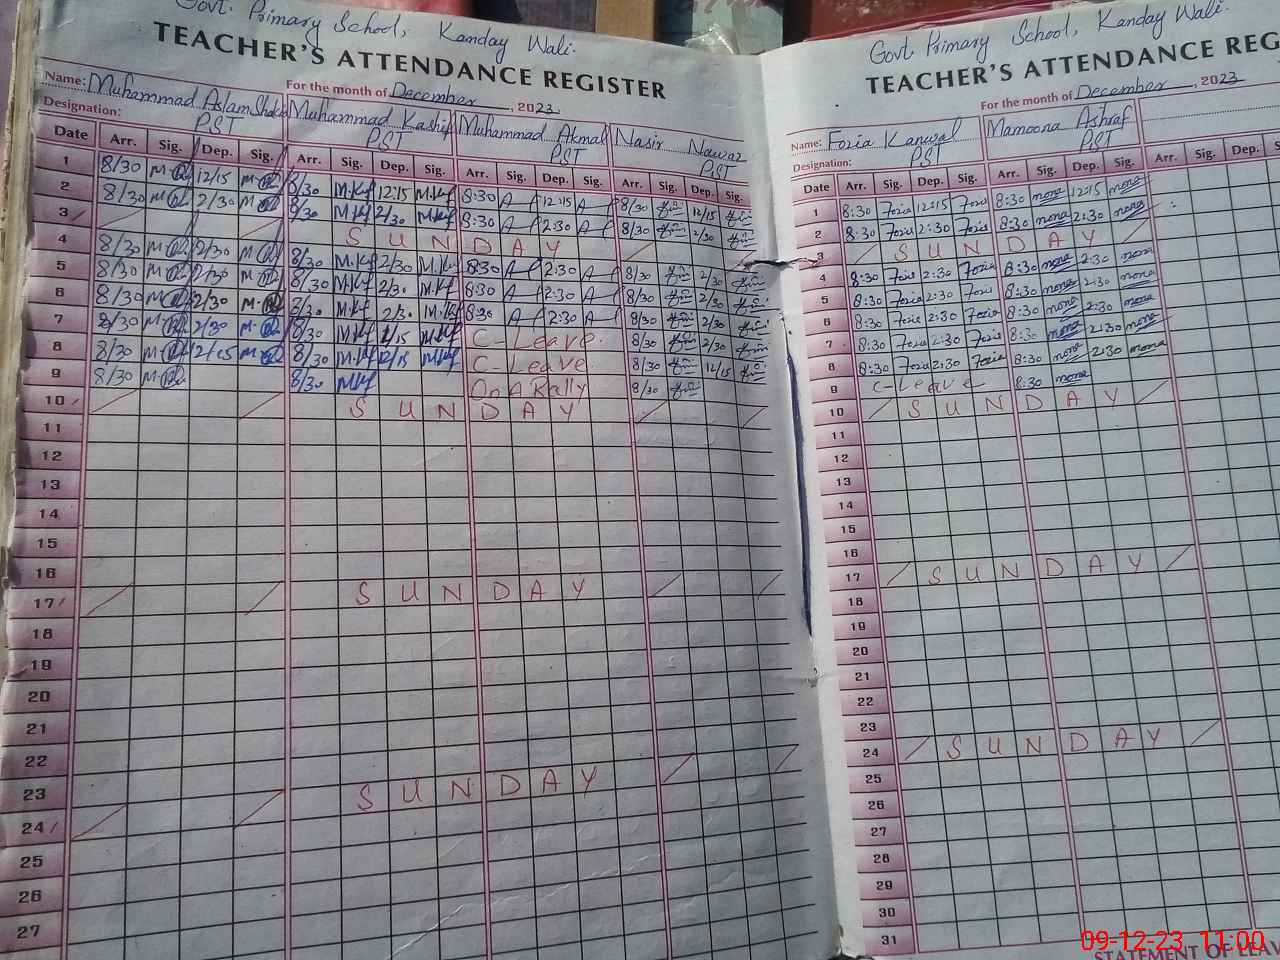 Govt. Primary School, Kanday Wali.
TEACHER'S ATTENDANCE REGISTER
For the month of December, 2023
Name: Muhammad Aslam Muhammad Kashif Muhammad Akmal Nasir Nawaz
Designation: PST PST PST PST
Date Arr. Sig. Dep. Sig. Arr. Sig. Dep. Sig. Arr. Sig. Dep. Sig. Arr. Sig. Dep. Sig.
1 8/30 12/15 8/30 M.Kf 12:15 M.Kf 8:30 12:15 8/30 12/15
2 8/30 2/30 8/30 M.Kf 2/30 M.Kf 8:30 2:30 8/30 2/30
3 SUNDAY
4 8/30 2/30 8/30 M.Kf 2/30 M.Kf 8:30 2:30 8/30 2/30
5 8/30 2/30 8/30 M.Kf 2/30 M.Kf 8:30 2:30 8/30 2/30
6 8/30 2/30 8/30 M.Kf 2/30 M.Kf 8:30 2:30 8/30 2/30
7 8/30 2/30 8/30 M.Kf M.Kf C-Leave. 8/30 2/30
8 8/30 8/30 M.Kf 12/15 M.Kf C-Leave 8/30 12/15
9 8/30 8/30 M.Kf On A Rally 8/30
10 SUNDAY
11
12
13
14
15
16
17 SUNDAY
18
19
20
21
22
23 SUNDAY
24
25
26
27
Govt Primary School, Kanday Wali.
TEACHER'S ATTENDANCE REG
For the month of December, 2023
Name: Fozia Kanwal Mamoona Ashraf
Designation: PST PST
Date Arr. Sig. Dep. Sig. Arr. Sig. Dep. Sig. Arr. Sig. Dep. S
1 8:30 Fozia 12:15 Fozia 8:30 mona 12:15 mona
2 8:30 Fozia 2:30 Fozia 8:30 mona 2:30 mona
3 SUNDAY
4 8:30 Fozia 2:30 Fozia 8:30 mona 2:30 mona
5 8:30 Fozia 2:30 Fozia 8:30 mona 2:30 mona
6 8:30 Fozia 2:30 Fozia 8:30 mona 2:30 mona
7 8:30 Fozia 2:30 Fozia 8:30 mona 2:30 mona
8 8:30 Fozia 2:30 Fozia 8:30 mona 2:30 mona
9 C-Leave 8:30 mona
10 SUNDAY
11
12
13
14
15
16
17 SUNDAY
18
19
20
21
22
23
24 SUNDAY
25
26
27
28
29
30
31
STATEMENT OF LEAV
09-12-23 11:00